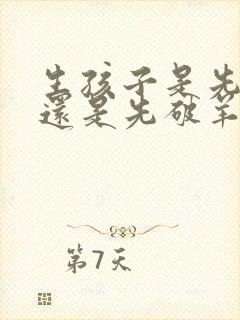 生孩子是先
還是先破羊
第7天